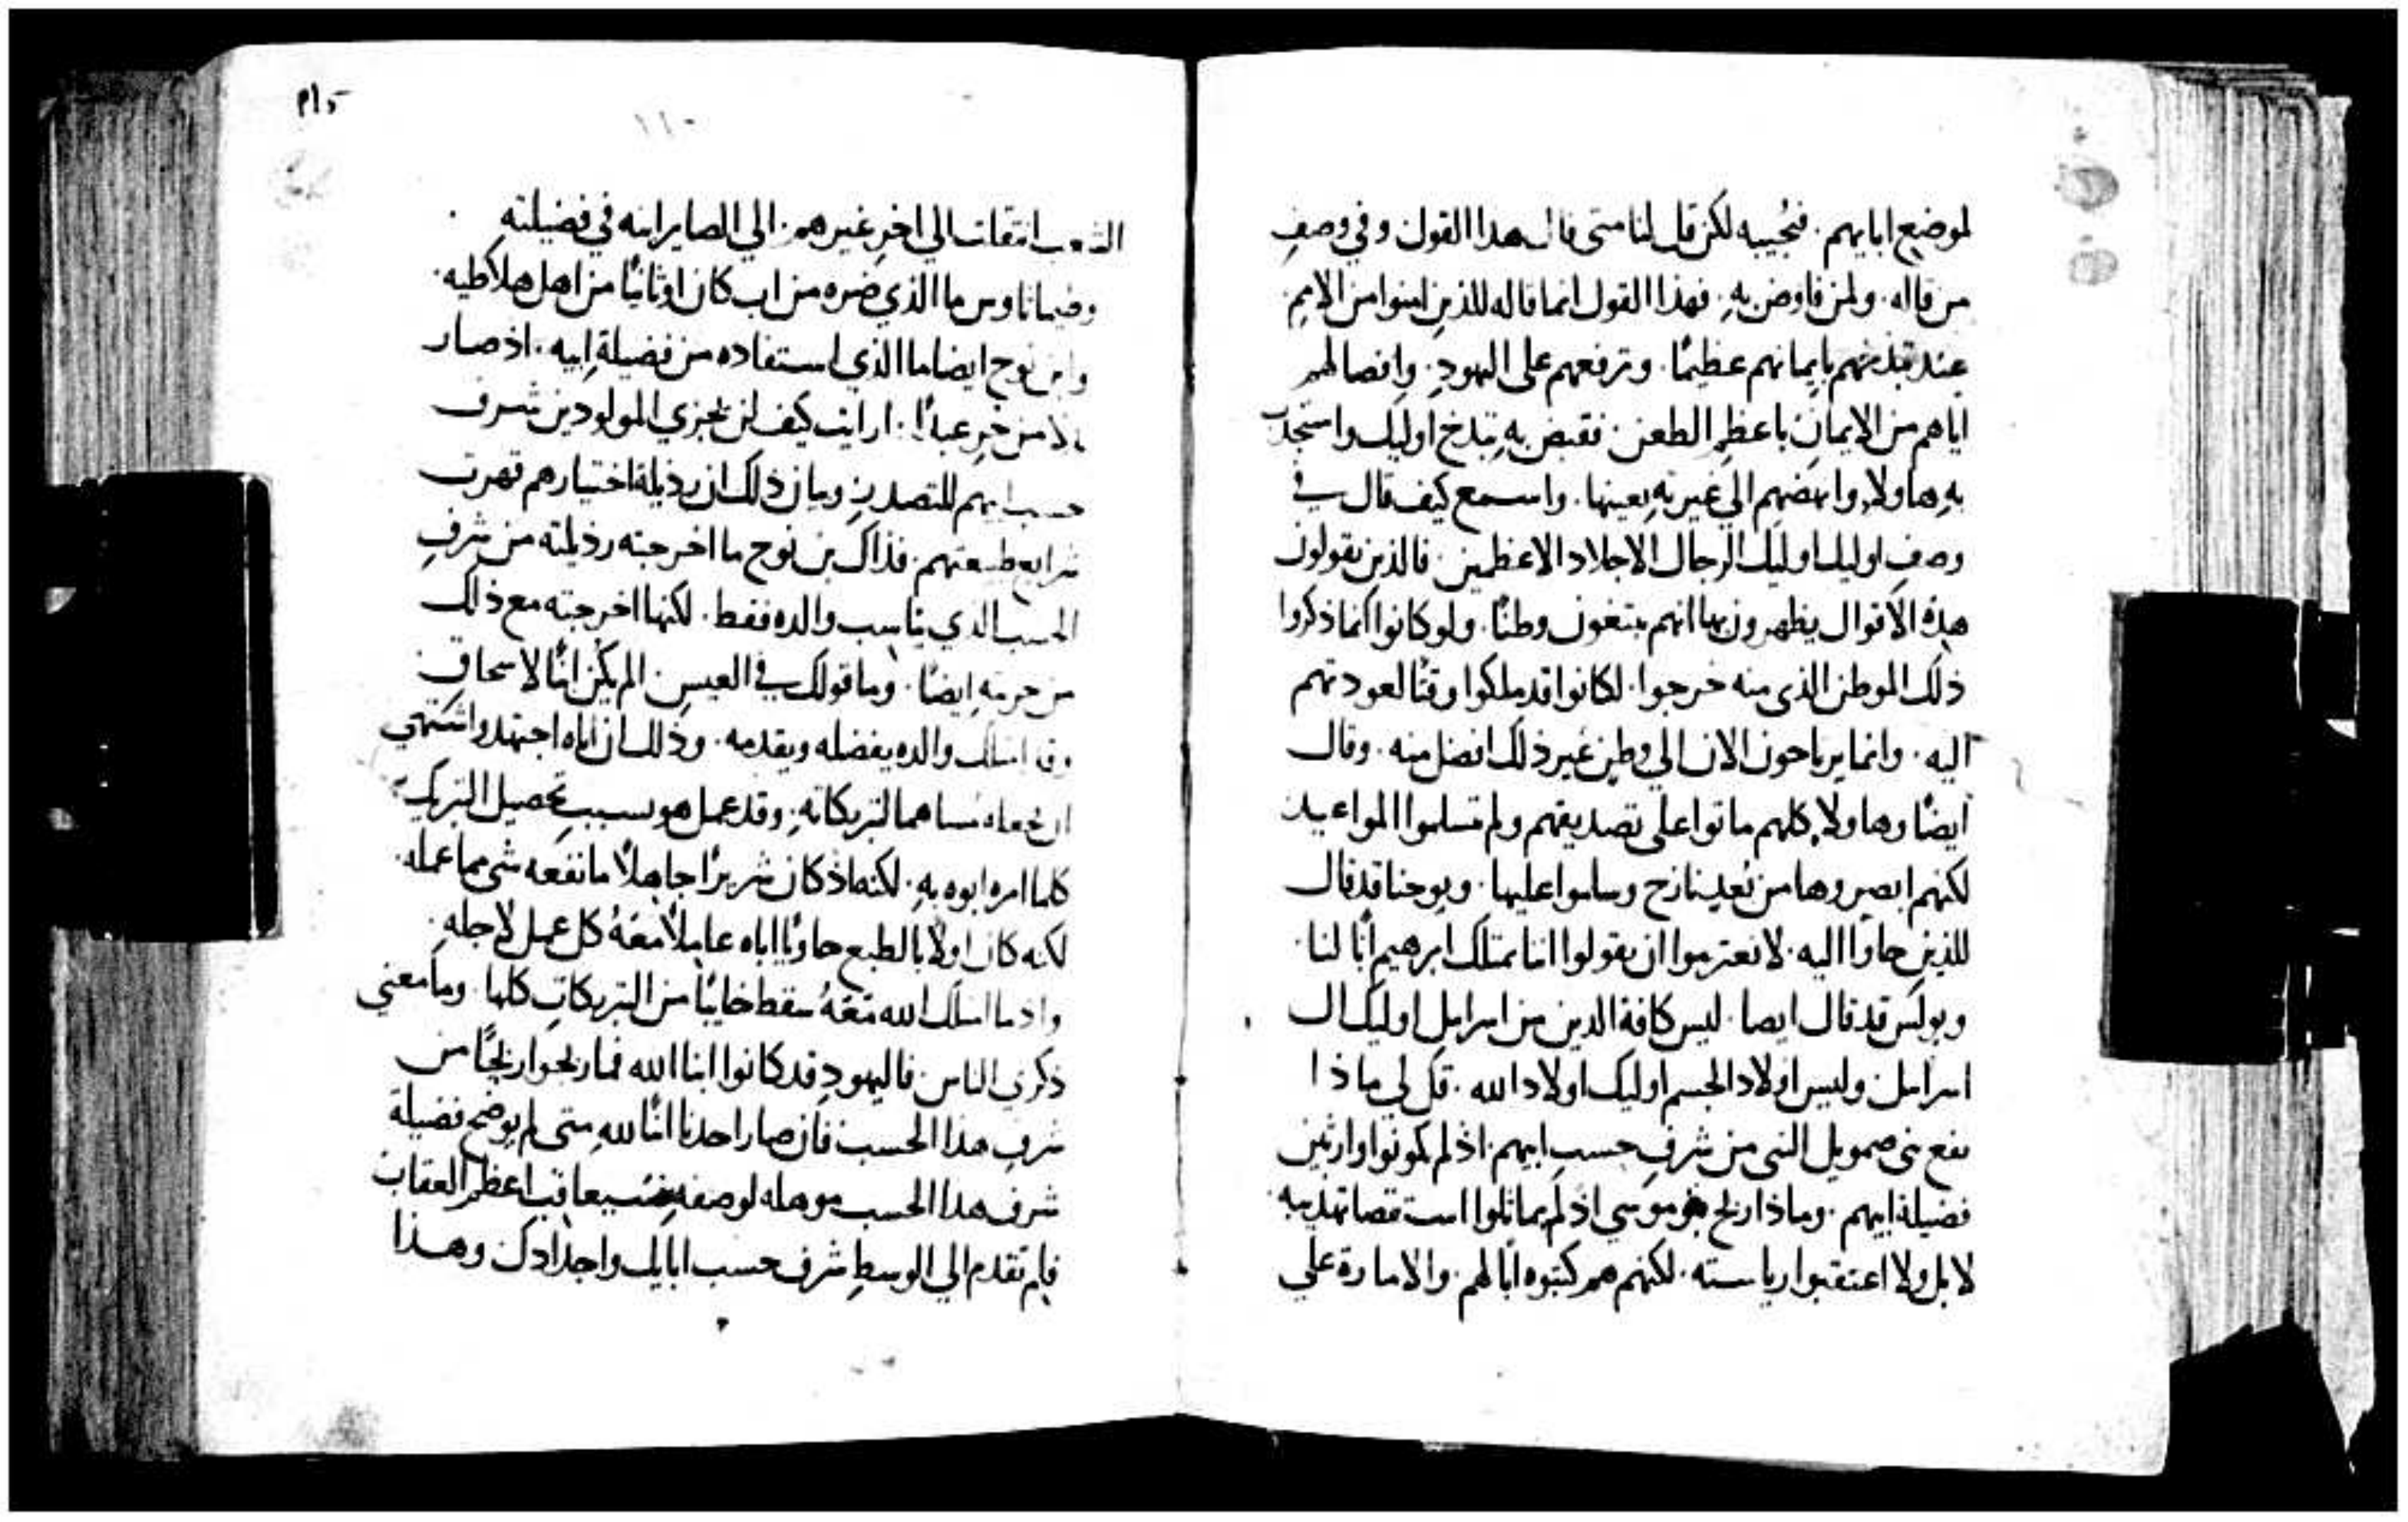 لموضع ابايهم. فنجيبه لكن قل لنا متى قال هدا القول وفي وصفِ
من قاله. ولمن فاوض به. فهذا القول انما قاله للذين امنوا من الاممِ
عند تبذخهم بايمانهم عظيمًا. وترفعهم على اليهودِ. وافصالهم
اياهم من الايمان باعظمِ الطعن. فقبض بهِ تبذخ اوليك واستجذب
بهِ هاولاِ وانهضهم الي غيرتهِ بعينها. واسمع كيف قال في
وصفِ اوليك اوليك الرجال الاجلاد الاعظمين. فالذين يقولون
هذه الاقوال يظهرون بها انهم يبتغون وطنًا. ولو كانوا انما ذكروا
ذلك الموطن الذي منه خرجوا. لكانوا قد ملكوا وقتًا لعودتهم
اليه. وانما يرتاحون الان الي وطنٍ غير ذلك افضل منه. وقال
ايضًا وهاولاِ كلهم ماتوا على تصديقهم ولم تسلموا المواعيد
لكنهم ابصروها من بُعدٍ نازح وسلموا عليها. ويوحنا قد قال
للذين جاوا اليه. لا تعتزموا ان تقولوا اننا نمتلك ابرهيم ابًا لنا.
وبولس قد قال ايضا. ليس كافة الدين من اسرايل اوليك ال
اسرايل وليس اولاد الجسم اوليك اولاد الله. قل لي ماذا
نفع بني صمويل النبي من شرفِ حسبِ ابيهم. اذ لم يكونوا وارثين
فضيلة ابيهم. وماذا ربح بنو موسى اذ لم يماثلوا استقصا تهذيبه
لا بل ولا اعتقبوا رياسته. لكنهم هم كتبوه ابًا لهم. والامارة على
الشعب انتقلت الي اخرِ غيرهم. الي الصاير ابنه في فضيلته
وطيماثاوس ما الذي ضره من اب كان اوثانيًا من اهل هلاكطيه.
وابن نوح ايضا ما الذي استفاده من فضيلة ابيه. اذ صار
بدلا من حرٍ عبدًا. ارايت كيف لن يجزي المولودين شرف
حسب ابيهم للتصدرِ وبان ذلك ان رذيلة اختيارهم قهرت
شرايع طبيعتهم. فذاك بن نوح ما اخرجته رذيلته من شرفِ
الحسب الذي يناسب والده فقط. لكنها اخرجته مع ذلك
من حرمتهِ ايضًا. وما قولك في العيس. الم يكن ابنًا لاسحاق
وقد امتلك والده يفضله ويقدمه. وذلك ان اباه اجتهد واشتهي
ان يجعله مُساهما لتبريكاتهِ. وقد عمل هو بسببِ تحصيل التبريك
كلما امره ابوه بهِ. لكنه اذ كان شريرًا جاهلًا ما نفعه شي مما عمله.
لكنه كان اولًا بالطبع حاويًا اباه عاملًا معهُ كل عمل لاجله.
واد ما امتلك الله معهُ سقط خايبًا من التبريكاتِ كلها. وما معني
ذكري الناس. فاليهود قد كانوا ابنا الله فما ربحوا ربحًا من
شرفِ هذا الحسب فان صار احدنا ابنًا للهِ متى لم يوضح فضيلة
شرف هدا الحسب موهله لوصفهِ سيعاقب اعظم العقاب
فلِم تقدم الي الوسطِ شرف حسب ابايك واجدادك وهـذا